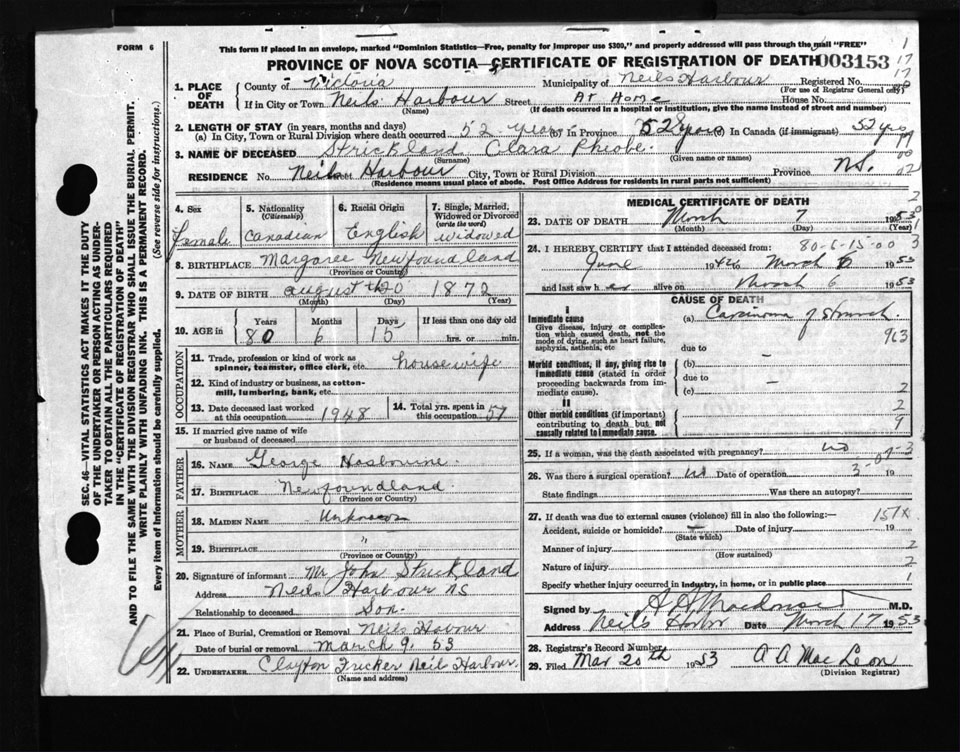 FORM 6
This form if placed in an envelope, marked "Dominion Statistics—Free, penalty for improper use $300," and properly addressed will pass through the mail "FREE"
PROVINCE OF NOVA SCOTIA—CERTIFICATE OF REGISTRATION OF DEATH 003153
1. PLACE OF DEATH
County of Victoria Municipality of Neils Harbour Registered No.
(For use of Registrar General only)
If in City or Town Neils Harbour Street At Home House No.
(Name) (If death occurred in a hospital or institution, give the name instead of street and number)
2. LENGTH OF STAY (in years, months and days)
(a) In City, Town or Rural Division where death occurred 52 years (b) In Province 52 years (c) In Canada (if immigrant) 52 yrs
3. NAME OF DECEASED Strickland Clara Pheobe.
(Surname) (Given name or names)
RESIDENCE No. Neils Harbour City, Town or Rural Division Province N.S.
(Residence means usual place of abode. Post Office Address for residents in rural parts not sufficient)
4. Sex
Female
5. Nationality
(Citizenship)
Canadian
6. Racial Origin
English
7. Single, Married, Widowed or Divorced
(write the word)
widowed
8. BIRTHPLACE Margaree Newfoundland
(Province or Country)
9. DATE OF BIRTH august th 20 1872
(Month) (Day) (Year)
10. AGE in
Years Months Days If less than one day old
80 6 15 hrs. or min.
OCCUPATION
11. Trade, profession or kind of work as spinner, teamster, office clerk, etc. housewife
12. Kind of industry or business, as cotton-mill, lumbering, bank, etc.
13. Date deceased last worked at this occupation 1948
14. Total yrs. spent in this occupation 57
15. If married give name of wife or husband of deceased
FATHER
16. NAME George
17. BIRTHPLACE Newfoundland
(Province or Country)
MOTHER
18. MAIDEN NAME Unknown
19. BIRTHPLACE "
(Province or Country)
20. Signature of informant Mr John Strickland
Address Neils Harbour NS
Relationship to deceased Son.
21. Place of Burial, Cremation or Removal Neils Havour
Date of burial or removal March 9, 53
22. UNDERTAKER Clayton Fricker Neil Harbour.
(Name and address)
MEDICAL CERTIFICATE OF DEATH
23. DATE OF DEATH March 7 1953
(Month) (Day) (Year)
24. I HEREBY CERTIFY that I attended deceased from: 80-6-15-00
June 1942 to March 6 1953
and last saw her alive on March 6 1953
CAUSE OF DEATH
I
Immediate cause
Give disease, injury or complication which caused death, not the mode of dying, such as heart failure, asphyxia, asthenia, etc
(a) Carcinoma of Stomach
963
due to
Morbid conditions, if any, giving rise to immediate cause (stated in order proceeding backwards from immediate cause).
(b)
due to
(c)
2
II
Other morbid conditions (if important) contributing to death but not causally related to immediate cause.
2
9
25. If a woman, was the death associated with pregnancy? no
26. Was there a surgical operation? no Date of operation 19
State findings Was there an autopsy?
27. If death was due to external causes (violence) fill in also the following:— 157x
Accident, suicide or homicide? Date of injury 19
(State which)
Manner of injury 2
(How sustained)
Nature of injury 2
Specify whether injury occurred in industry, in home, or in public place 1
Signed by M.D.
Address Neils Harbor Date March 17 1953
28. Registrar's Record Number
29. Filed Mar 20th 1953 A A MacLeon
(Division Registrar)
SEC. 46—VITAL STATISTICS ACT MAKES IT THE DUTY
OF THE UNDERTAKER OR PERSON ACTING AS UNDER-
TAKER TO OBTAIN ALL THE PARTICULARS REQUIRED
IN THE "CERTIFICATE OF REGISTRATION OF DEATH"
AND TO FILE THE SAME WITH THE DIVISION REGISTRAR WHO SHALL ISSUE THE BURIAL PERMIT.
WRITE PLAINLY WITH UNFADING INK. THIS IS A PERMANENT RECORD.
Every item of information should be carefully supplied. (See reverse side for instructions.)